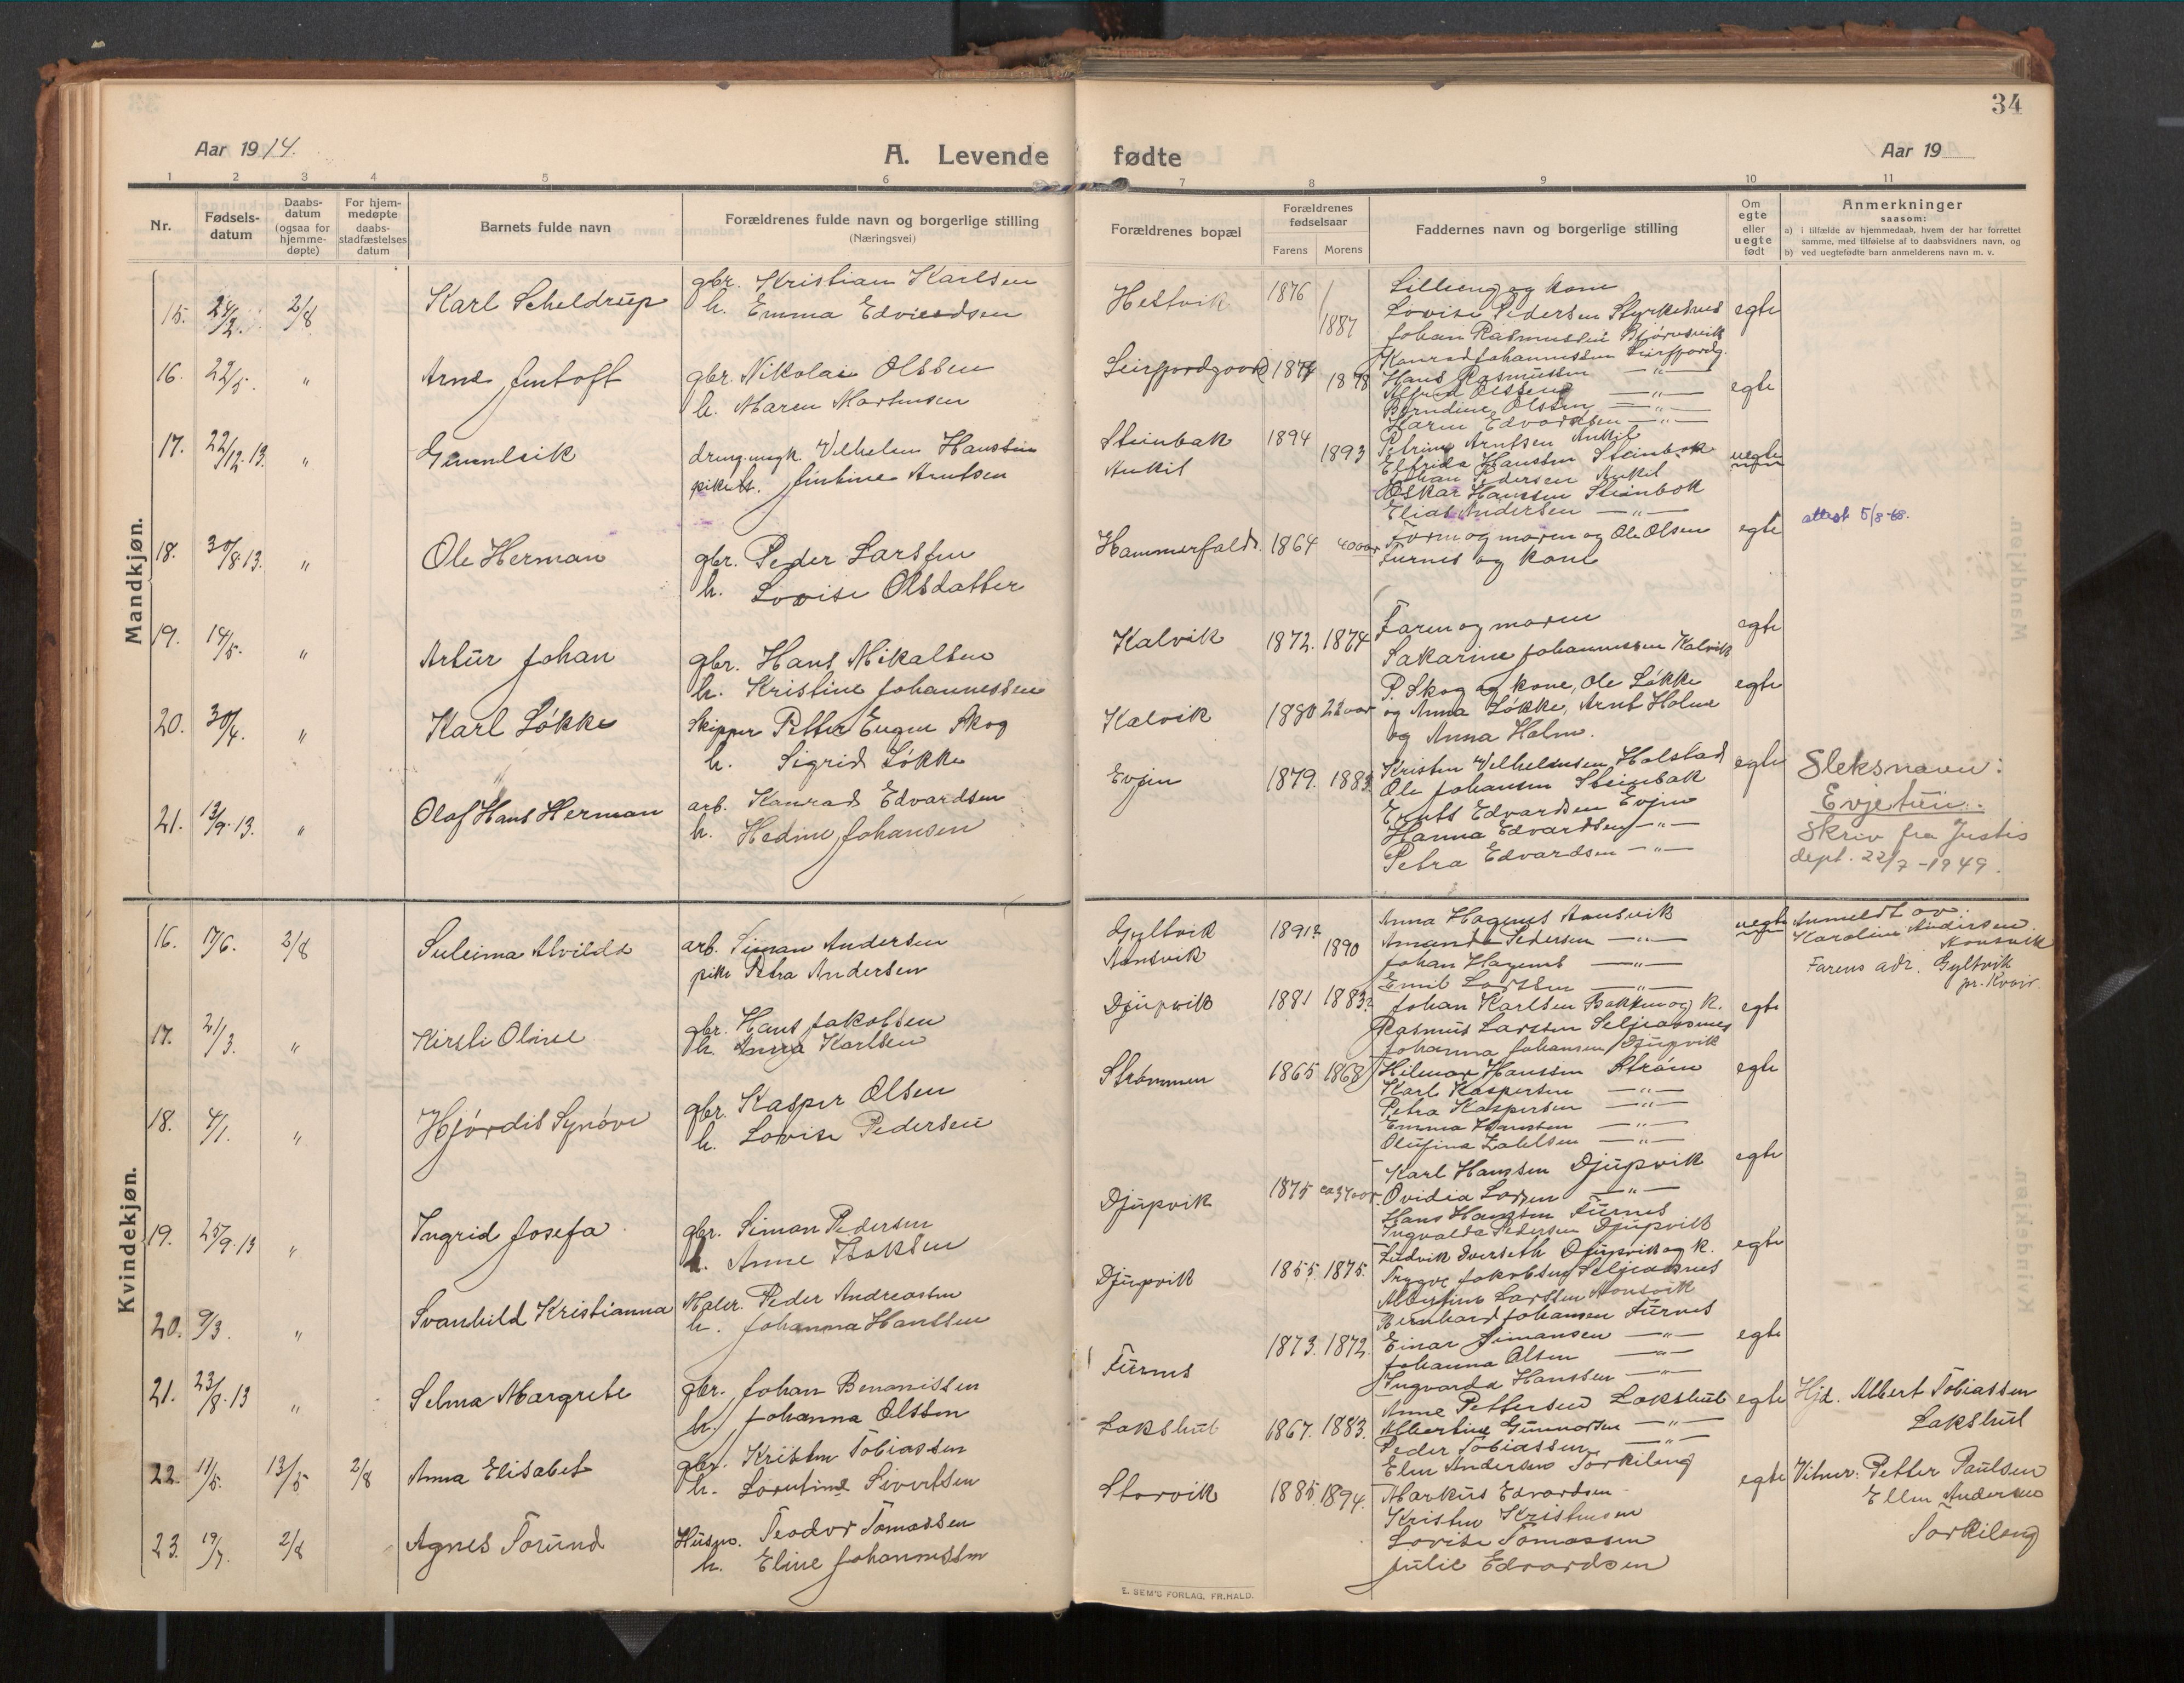 34
Aar 1914.
A. Levende fødte
Aar 19
1 2 3 4 5 6 7 8 9 10 11
Nr.
Fødsels-
datum
Daabs-
datum
(ogsaa for
hjemme-
døpte)
For hjem-
medøpte
daabs-
stadfæstelses
datum
Barnets fulde navn
Forældrenes fulde navn og borgerlige stilling
(Næringsvei)
Forældrenes bopæl
Forældrenes
fødselsaar
Farens Morens
Faddernes navn og borgerlige stilling
Om
egte
eller
uegte
født
Anmerkninger
saasom:
a) i tilfælde av hjemmedaab, hvem der har forrettet
samme, med tilføielse af to daabsvidners navn, og
b) ved uegtefødte barn anmelderens navn m. v.
Mandkjøn.
15. 24/2. 2/8 Karl Scheldrup
gbr. Kristian Karlsen
h. Emma
Hestvik 1876 1887
Lillieng og kone
Lovise Pedersen Styrkesnes
Johan Rasmussen Bjørnsvik
egte
16. 22/5. " Arne Jentoft
gbr. Nikolai Olssen
h. Maren Martensen
1878
Konrad Johannessen Leirfjordg.
Hans Rasmussen —"—
Alfred Olssen —"—
Berndine Olssen —"—
Karen Edvardsen —"—
egte
17. 22/12-13. " Gunnleik
drengungk. Vilhelm Hanssen
pike Jentine Arntsen
Steinbak
Ankil
1894 1893
Petrine Arntsen Ankil
Elfrida Hanssen Steinbak
Johan Pedersen Ankil
Oskar Hanssen Steinbak
Elias Andersen —"—
uegte
18. 30/8-13. " Ole Herman
gbr. Peder Larssen
h. Lovise Olsdatter
Hammerfald. 1864 40 aar
Faren og moren og Ole Olsen
Furnes og kone
egte
attest 5/8-68.
19. 14/5. " Artur Johan
gbr. Hans Mikalsen
h. Kristine Johannessen
Kalvik 1872. 1874
Faren og moren
Sakarine Johannessen Kalvik
egte
20. 30/4. " Karl Løkke
Skipper Petter Eugen Skog
h. Sigrid Løkke
Kalvik 1880 22 aar
P. Skog og kone, Ole Løkke
og Anna Løkke, Arnt Holm
og Anna Holm.
egte
21. 13/9-13. " Olaf Hans Herman
arb. Konrad Edvardsen
h. Hedine Johansen
Evjen 1879. 1883
Kristen Vilhelmsen Holstad
Ole Johansen Steinbak
Edvardsen Evjen
Hanna Edvardsen —"—
Petra Edvardsen —"—
egte
Sleksnavn:
Evjetun.
Skriv fra Justis
dept. 22/7-1949.
Kvindekjøn.
16. 17/6. 2/8 Suleima Alvilda
arb. Siman Andersen
pike Petra Andersen
Gyltvik
Aansvik
1891? 1890
Anna Hagenes Aansvik
Amanda Pedersen —"—
Johan Hagenes —"—
Emil Larssen —"—
uegte
Anmeldt av:
Karoline Andersen
Aansvik
Farens adr. Gyltvik
pr. Kvar.
17. 21/3. " Kirsti Oline
gbr. Hans Jakobsen
h. Anna Karlsen
Djupvik 1881 1883?
Johan Karlsen Bakken og k.
Rasmus Larssen Seljeaasnes
Johanna Johansen Djupvik
egte
18. 4/1. " Hjørdis Synøve
gbr. Kasper Olsen
h. Lovise Pedersen
Strømmen 1865 1868
Hilmar Hanssen Strøm
Karl Kaspersen —"—
Petra Kaspersen —"—
Emma Hanssen —"—
Olufina —"—
egte
19. 25/9-13 " Ingrid Josefa
gbr. Siman Pedersen
h. Anne Isaksen
Djupvik 1875 ca 37 aar.
Karl Hanssen Djupvik
Ovidia Larsen —"—
Hans Hanssen Furnes
Ingvalda Pedersen Djupvik
egte
20. 9/3. " Svanhild Kristianna
Maler. Peder Andreassen
h. Johanna Hanssen
Djupvik 1855. 1875.
Ludvik Sverseth Djupvik og k.
Trygve Jakobsen Seljeaasnes
Albertine Larssen Aansvik
egte
21. 23/8-13 " Selma Margrete
gbr. Johan Benonissen
h. Johanna Olssen
Furnes 1873. 1872.
Bernhard Johansen Furnes
Einar Simansen —"—
Johanna Olsen —"—
Ingvarda Hanssen —"—
egte
22. 11/5. 13/5 2/8 Anna Elisabet
gbr. Kristen Tobiassen
h. Lorentine Sivertsen
Lakshul 1867. 1883.
Anne Pettersen Lakshul
Albertine Gunnarsen —"—
Peder Tobiassen —"—
Elen Andersen Torkileng
egte
Hjd. Albert Tobiassen
Lakshul
Vitner: Petter Paulsen
Ellen Andersen
Torkileng
23. 19/7. 2/8 Agnes Torund
Husm. Teodor Tomassen
h. Eline Johannessen
Storvik 1885. 1894.
Markus Edvardsen
Kristen Kristensen
Lovise Tomassen
Julie Edvardsen
egte
E. SEM'S FORLAG, FR.HALD.